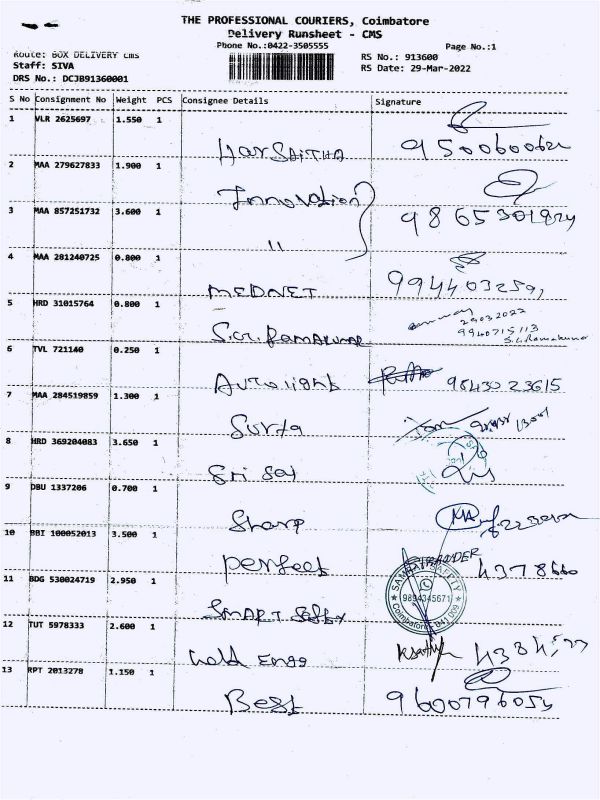 THE PROFESSIONAL COURIERS, Coimbatore
Delivery Runsheet - CMS
Phone No.:0422-3505555
Page No.:1
Route: BOX DELIVERY cms
RS No.: 913600
Staff: SIVA
RS Date: 29-Mar-2022
DRS No.: DCJB91360001
S No Consignment No Weight PCS Consignee Details Signature
1 VLR 2625697 1.550 1
2 MAA 279627833 1.900 1
Innovation
3 MAA 857251732 3.600 1
"
4 MAA 281240725 0.800 1
MEDNET
5 HRD 31015764 0.800 1
29032022
9940715113
S.G. Ramakumar
6 TVL 721140 0.250 1
Autolight 98430 23615
7 MAA 284519859 1.300 1
Surya
8 HRD 369204083 3.650 1
Sri Sai
9 DBU 1337206 0.700 1
Sharp
10 BBI 100052013 3.500 1
Perfect 4378660
11 BDG 530024719 2.950 1
SMART Safety
9894345671
Coimbatore
12 TUT 5978333 2.600 1
Gold Engg
13 RPT 2013278 1.150 1
Best 9600796054